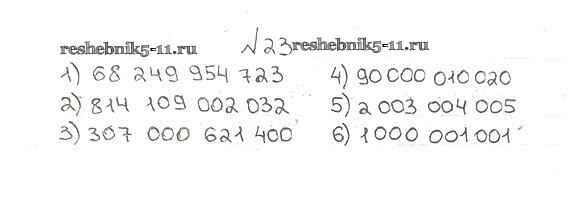 reshebnik5-11.ru №23 reshebnik5-11.ru
1) 68 249 954 723
2) 814 109 002 032
3) 307 000 621 400
4) 90 000 010 020
5) 2 003 004 005
6) 1000 001 001